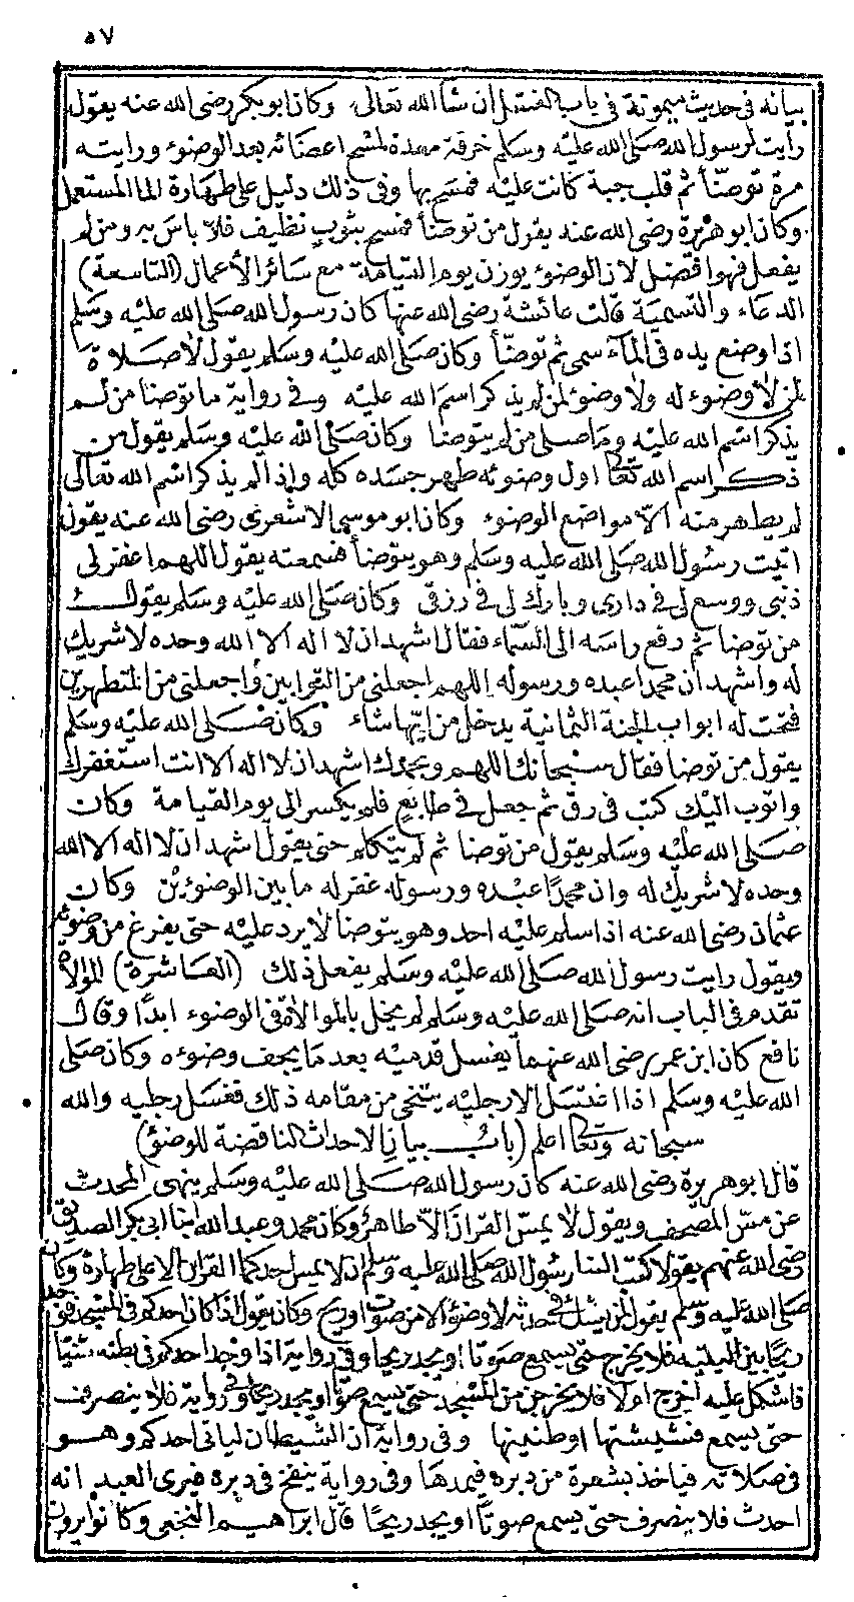 ٥٧
بيانه فى حديث ميمونة فى باب الغسل ان شأ الله تعالى وكان ابو بكر رضى الله عنه يقول
رايت لرسول الله صلى الله عليه وسلم خرقة معدة لمسح اعضائه بعد الوضوء ورايته
مرة توضأ ثم قلب جبة كانت عليه فمسح بها وفى ذلك دليل على طهارة الما المستعمل
وكان ابو هريرة رضى الله عنه يقول من توضأ فمسح بثوب نظيف فلا باس به ومن لم
يفعل فهو افضل لان الوضوء يوزن يوم القيامة مع سائر الأعمال (التاسعة)
الدعاء والتسمية قالت عائشة رضى الله عنها كان رسول الله صلى الله عليه وسلم
اذا وضع يده فى المآء سمى ثم توضأ وكان صلى الله عليه وسلم يقول لا صلاة
لمن لا وضوء له ولا وضوء لمن لم يذكر اسم الله عليه وفى رواية ما توضا من لم
يذكر اسم الله عليه وما صلى من لم يتوضا وكان صلى الله عليه وسلم يقول من
ذكر اسم الله تعا اول وضوئه طهر جسده كله واذا لم يذكر اسم الله تعالى
لم يطهر منه الا مواضع الوضوء وكان ابو موسى الاشعرى رضى الله عنه يقول
اتيت رسول الله صلى الله عليه وسلم وهو يتوضأ فسمعته يقول اللهم اغفر لى
ذنبى ووسع لى فى دارى وبارك لى فى رزقى وكان صلى الله عليه وسلم يقول
من توضا ثم رفع راسه الى السماء فقال اشهد ان لا اله الا الله وحده لا شريك
له واشهد ان محمدا عبده ورسوله اللهم اجعلنى من التوابين واجعلنى من المتطهرين
فتحت له ابواب الجنة الثمانية يدخل من ايها شاء وكان صلى الله عليه وسلم
يقول من توضا فقال سبحانك اللهم وبحمدك اشهد ان لا اله الا انت استغفرك
واتوب اليك كتب فى رق ثم جعل فى طابع فلم يكسر الى يوم القيامة وكان
صلى الله عليه وسلم يقول من توضا ثم لم يتكلم حتى يقول اشهد ان لا اله الا الله
وحده لا شريك له وان محمدا عبده ورسوله غفر له ما بين الوضوئين وكان
عثمان رضى الله عنه اذا سلم عليه احد وهو يتوضا لا يرد عليه حتى يفرغ من وضوئه
ويقول رايت رسول الله صلى الله عليه وسلم يفعل ذلك (العاشرة) الموالاة
تقدم فى الباب انه صلى الله عليه وسلم لم يخل بالموالاة فى الوضوء ابدا وقال
نافع كان ابن عمر رضى الله عنهما يغسل قدميه بعد ما يجف وضوءه وكان صلى
الله عليه وسلم اذا اغتسل الا رجليه يتنحى من مقامه ذلك فغسل رجليه والله
سبحانه وتعا اعلم (باب بيان الاحداث الناقضة للوضوء)
قال ابو هريرة رضى الله عنه كان رسول الله صلى الله عليه وسلم ينهى المحدث
عن مس المصحف ويقول لا يمس القران الا طاهر وكان محمد وعبد الله ابنا ابى بكر الصديق
رضى الله عنهم يقولا كتب الينا رسول الله صلى الله عليه وسلم ان لا يمس احدكما القران الا على طهارة وكان
صلى الله عليه وسلم يقول لمن شك فى حدثه لا وضوء الا من صوت او ريح وكان يقول اذا كان احدكم فى المسجد فوجد
ريحا بين اليتيه فلا يخرج حتى يسمع صوتا او يجد ريحا وفى رواية اذا وجد احدكم فى بطنه شيئا
فاشكل عليه اخرج اولا فلا يخرجن من المسجد حتى يسمع صوتا او يجد ريحا وفى رواية فلا ينصرف
حتى يسمع فشيشتها او طنينها وفى رواية ان الشيطان لياتى احدكم وهو
فى صلاته فياخذ بشعرة من دبره فيمدها وفى رواية ينفخ فى دبره فيرى العبد انه
احدث فلا ينصرف حتى يسمع صوتا او يجد ريحا قال ابراهيم النخعى وكانوا يرون